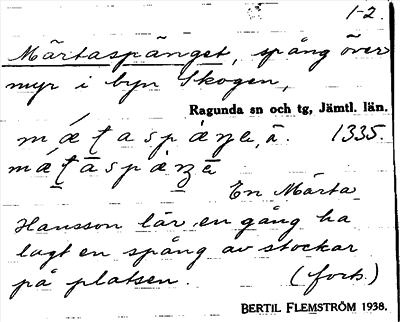 1-2.
Märtaspänget, spång över
myr i byn Skogen,
Ragunda sn och tg, Jämtl. län.
1335.
En Märta
Hansson lär en gång ha
lagt en spång av stockar
på platsen. (forts.)
BERTIL FLEMSTRÖM 1938.